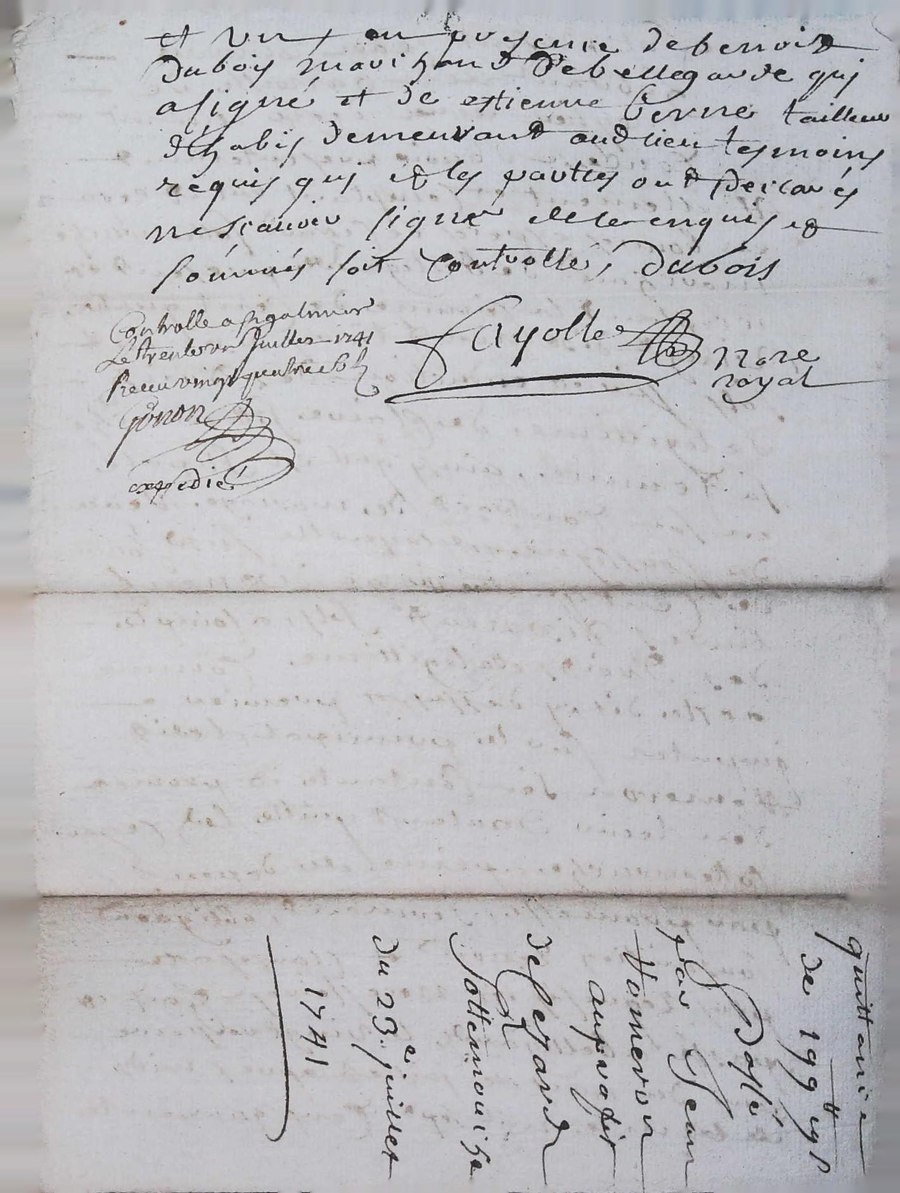 et un en presence de benoist
dubois marchand de bellegarde qui
a signé et de estienne berne tailleur
d'habis demeurant aud lieu tesmoins
requis qui et les parties ont declarés
ne scavoir signer de ce enquis et
sommés soit controllé, dubois
Controlle a
Le trente un Juillet 1741
Receu vingt quatre sols
expedié
fayolle
no.re
royal
quittance
de 199 lt 19 s
passé
par Jean
Vomeron
au profit
de Lezard
Jottermouiha
du 23.e juillet
1741